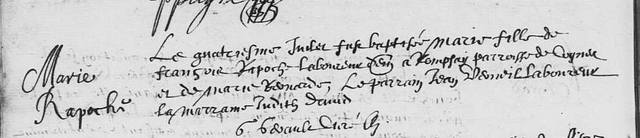 Marie
Rapoch
Le quatriesme Juilet fust baptisée Marie fille de
françois Rapoch Laboureur a Rompsay parroisse de Cognet
et de marie Le parrain Jean Laboureur
la marrame Judith david